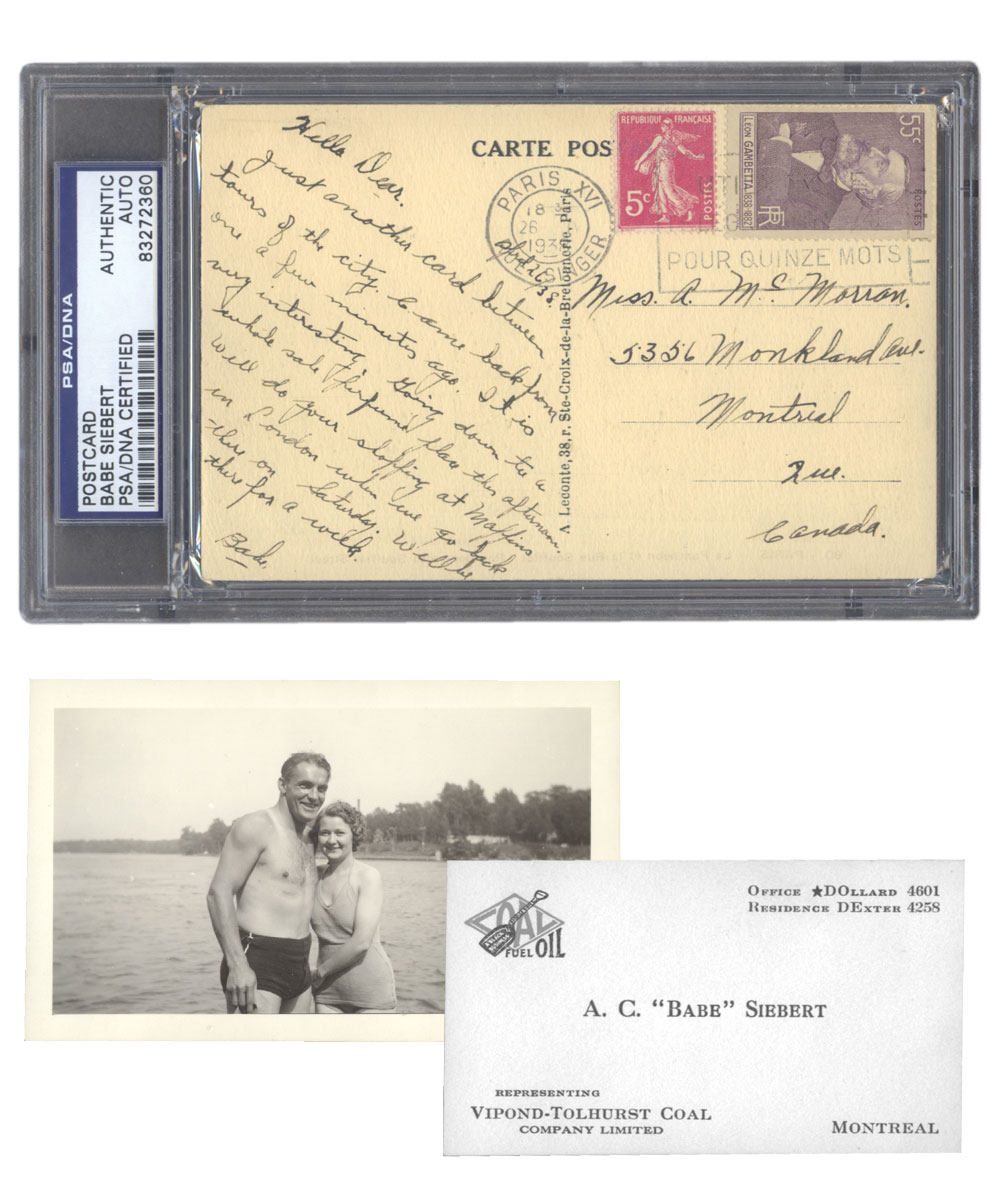 PSA/DNA
POSTCARD
BABE SIEBERT
PSA/DNA CERTIFIED
AUTHENTIC
AUTO
83272360
CARTE POS
REPUBLIQUE FRANÇAISE
5c
POSTES
LEON GAMBETTA 1838-1882
55c
RF
POSTES
PARIS XVI
18
26
193
SINGER
POUR QUINZE MOTS
38.
Hello Dear.
Just another card between
tours of the city. Came back from
one a few minutes ago. It is
very interesting. Going down to a
whole sale perfume place this afternoon.
Will do your shopping at
in London when we go back
there on Saturday. Will be
there for a week
Babe.
A Leconte, 38, r. Ste-Croix-de-la-Bretonnerie, Paris
Miss. A. Mc Morran.
5356 Monkland Ave.
Montreal
Que.
Canada.
COAL
FUEL OIL
OFFICE ★DOLLARD 4601
RESIDENCE DEXTER 4258
A. C. "BABE" SIEBERT
REPRESENTING
VIPOND-TOLHURST COAL
COMPANY LIMITED
MONTREAL